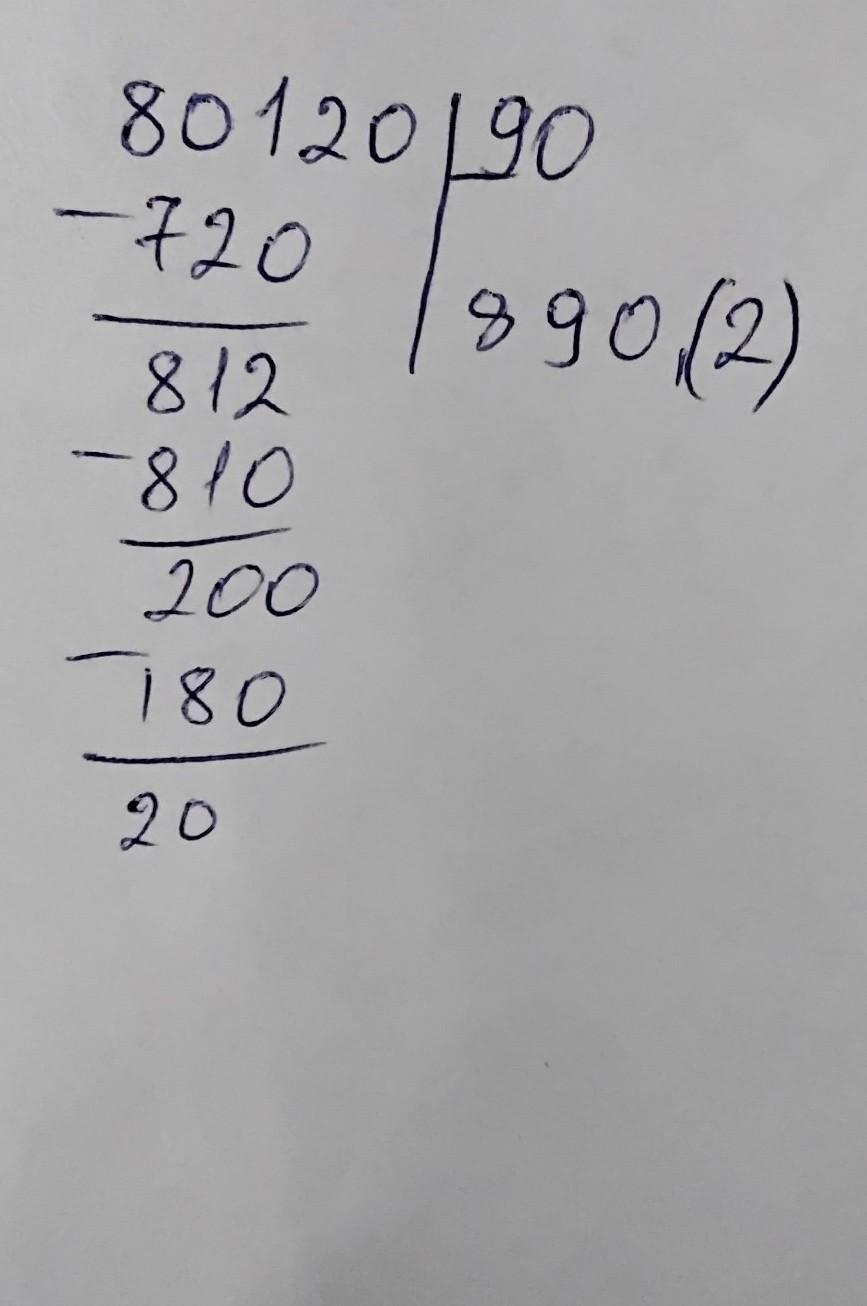 80120 90
-720
890,(2)
812
-810
200
-180
20